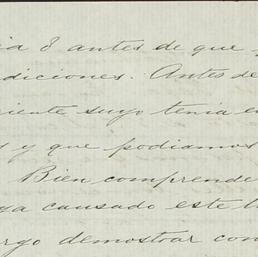 ia 8 antes de que
diciones. Antes de
iente suyo tenia en
s y que podiamos
Bien comprende
ya causado este
argo demostrar con